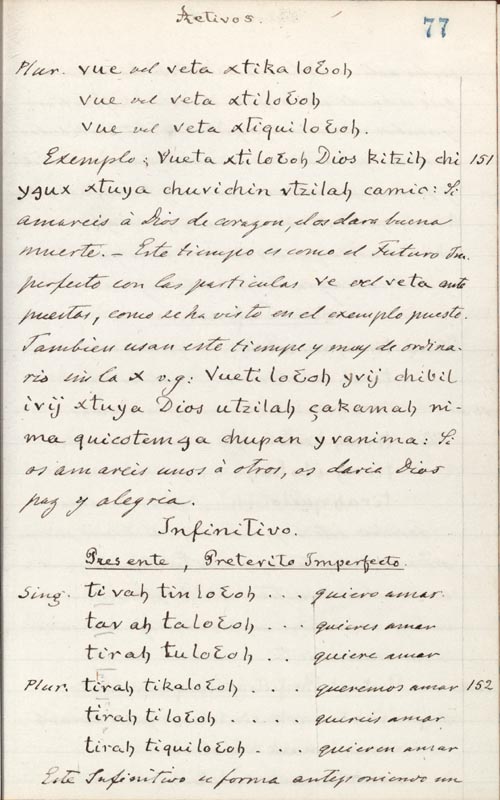 Activos.
77
Plur. vue vel veta xtikaloɛoh
vue vel veta xtiloɛoh
vue vel veta xtiquiloɛoh.
Exemplo: Vueta xtiloɛoh Dios kitzih chi 151
yqux xtuya chuvichin vtzilah camic: Si
amareis à Dios de corazon, el os dara buena
muerte. – Este tiempo es como el Futuro Im-
perfecto con las particulas ve vel veta ante
puestas, como se ha visto en el exemplo puesto.
Tambien usan este tiempo y muy de ordina-
rio sin la x v.g: Vueti loɛoh yvij chibil
ivij xtuya Dios utzilah çakamah ni-
ma quicotemqa chupan yvanima: Si
os amareis unos à otros, os daria Dios
paz y alegria.
Infinitivo.
Presente, Preterito Imperfecto.
Sing. tivah tinloɛoh ... quiero amar
tavah taloɛoh ... quieres amar
tirah tuloɛoh .. quiere amar
Plur. tirah tikaloɛoh ... queremos amar 152
tirah tiloɛoh .... quereis amar
tirah tiquiloɛoh ... quieren amar
Este Infinitivo se forma anteponiendo un